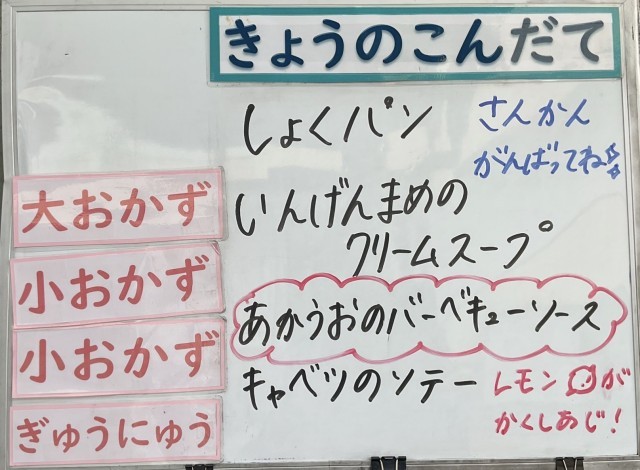 きょうのこんだて
しょくパン
さんかん
がんばってね
大おかず
いんげんまめの
クリームスープ
小おかず
あかうおのバーベキューソース
小おかず
キャベツのソテー
レモンが
かくしあじ!
ぎゅうにゅう